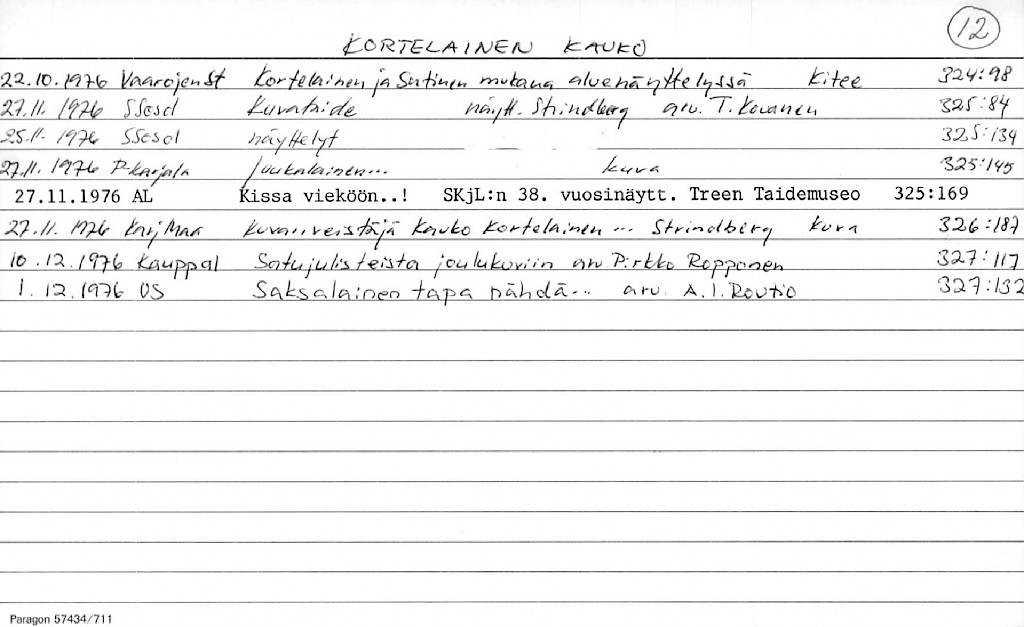 12
KORTELAINEN KAUKO
22.10.1976 Vaarojenst Kortelainen ja Sutinen mukana aluenäyttelyssä Kitee 324:98
27.11.1976 SSosd Kuvataide näytt. Strindberg arv. T. Kovanen 325:84
25.11.1976 SSosd näyttelyt 325:134
27.11.1976 P-Karjala Joukalainen... kuva 325:145
27.11.1976 AL Kissa vieköön..! SKjL:n 38. vuosinäytt. Treen Taidemuseo 325:169
27.11.1976 KarjMaa Kuvanveistäjä Kauko Kortelainen ... Strindberg kuva 326:187
10.12.1976 Kauppal Satujulisteista joulukuviin arv Pirkko Ropponen 327:117
1.12.1976 US Saksalainen tapa nähdä... arv. A.I. Routio 327:132
Paragon 57434/711